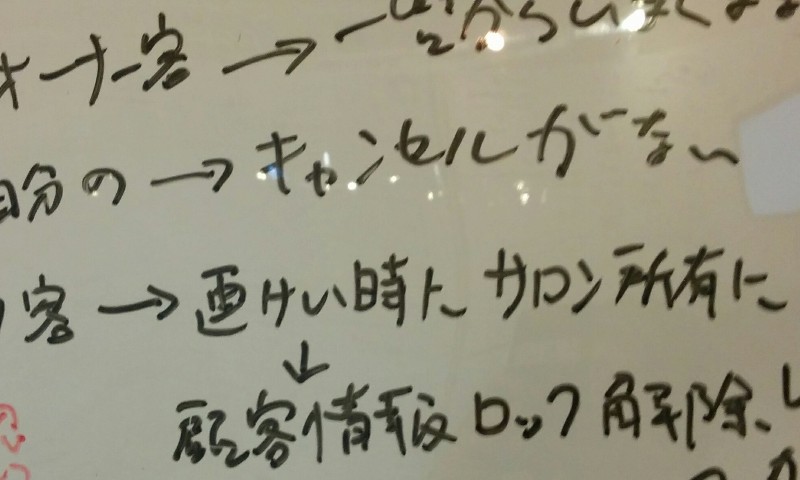 オーナー客 → 一
自分の → キャンセルがない
客 → 画けい時に サロン所有に
↓
顧客情報ロック解除、し